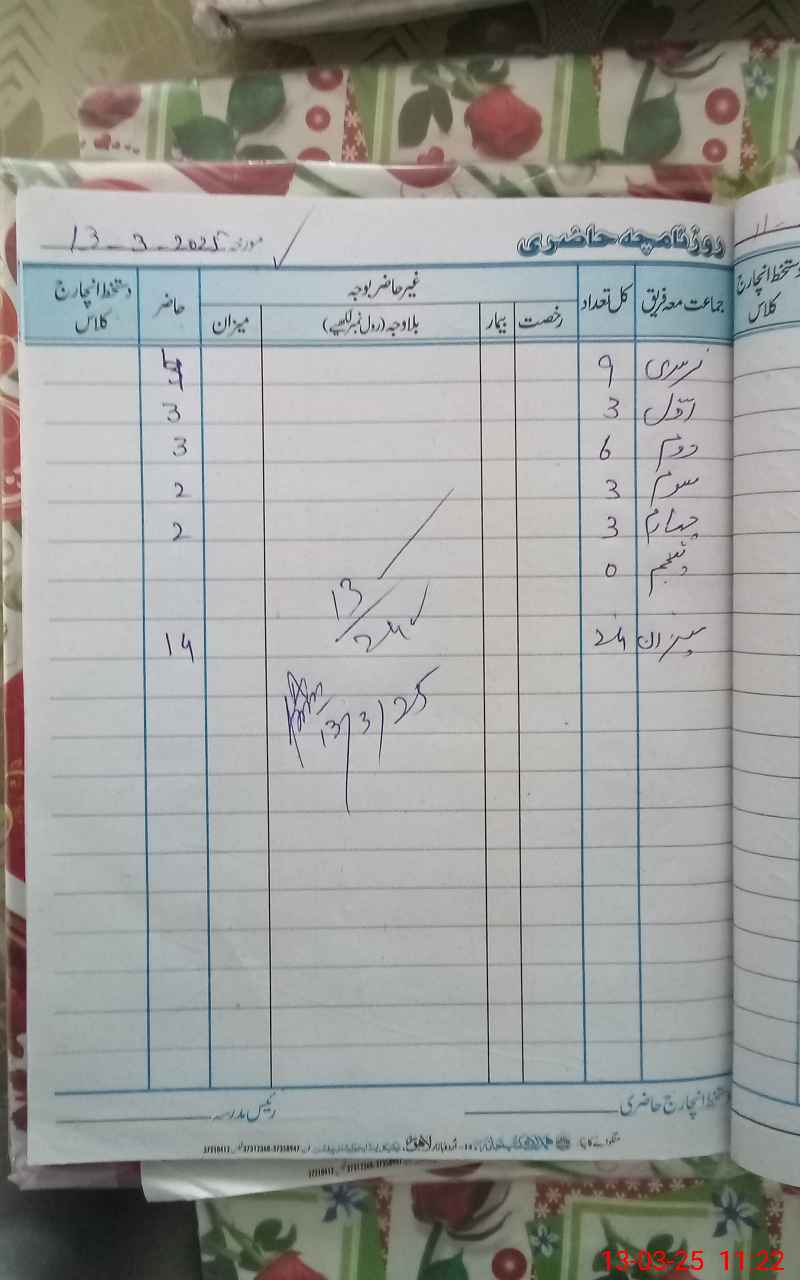 روزنامچہ حاضری
مورخہ 13-3-2025
جماعت معہ فریق کل تعداد غیر حاضر بوجہ حاضر دستخط انچارج کلاس
رخصت بیمار بلاوجہ (رول نمبر لکھیے) میزان
نرسری 9
اول 3 3
دوم 6 3
سوم 3 2
چہارم 3 2
پنجم 0
میزان 24 14
13/24
13/3/25
دستخط انچارج حاضری رئیس مدرسہ
دستخط انچارج کلاس
13-03-25 11:22